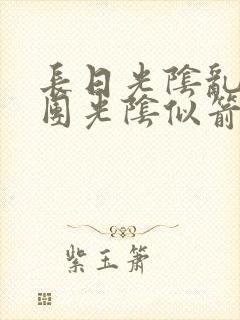 長日光陰亂
團光陰似箭
紫玉簫